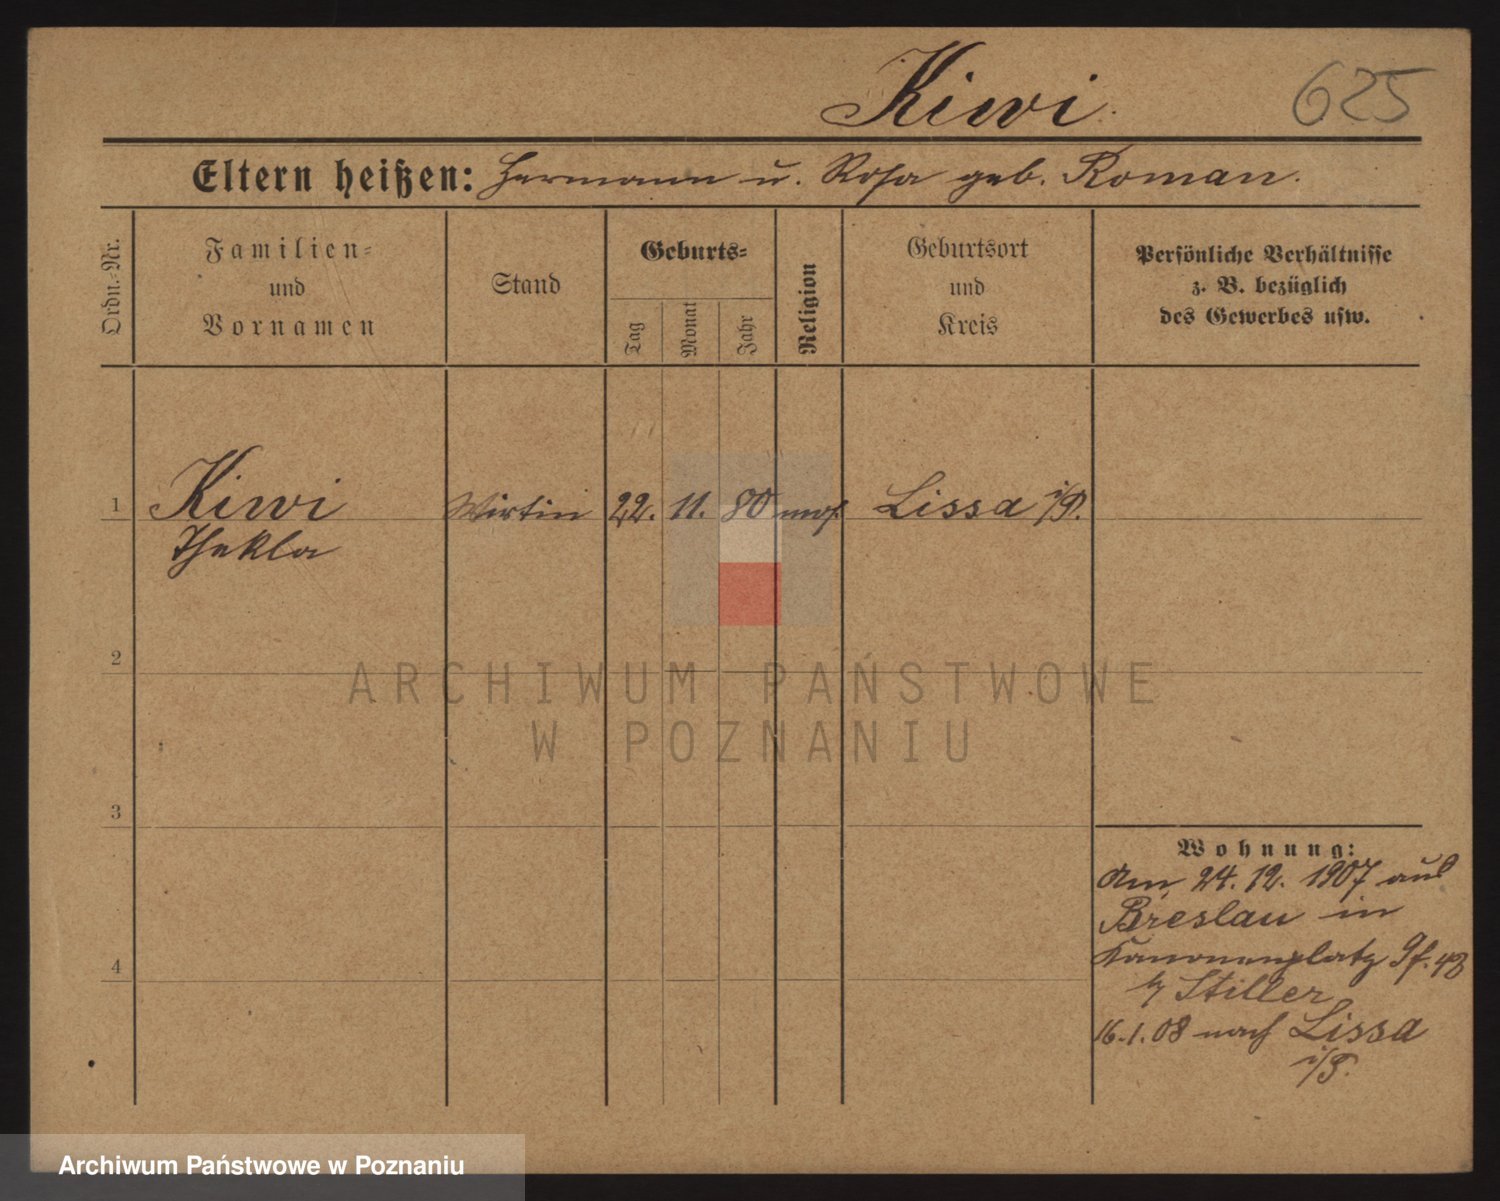 Kiwi.
625
Eltern heißen: Hermann u. Rosa geb. Roman.
Ordn.-Nr.
Familien-
und
Vornamen
Stand
Geburts-
Tag
Monat
Jahr
Religion
Geburtsort
und
Kreis
Persönliche Verhältnisse
z. B. bezüglich
des Gewerbes usw.
1
Kiwi
Thekla
Wirtin
22.
11.
80
mos.
Lissa i/P.
2
3
4
Wohnung:
Am 24. 12. 1907 aus
Breslau in
Kanonenplatz
Stiller
16.1.08 nach Lissa
i/P.
ARCHIWUM PAŃSTWOWE
W POZNANIU
Archiwum Państwowe w Poznaniu